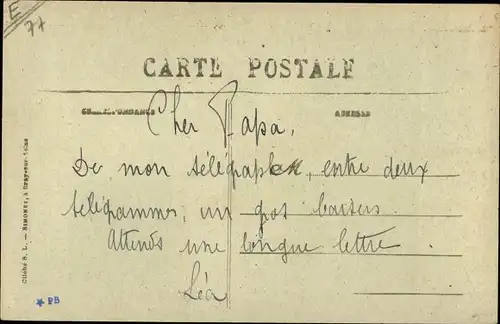 E
77
CARTE POSTALE
CORRESPONDANCE
ADRESSE
Cher Papa,
De mon télégraphe, entre deux
télégrammes, un gos baisers
Attends une longue lettre
Léa
Cliché S. L. — SIMONET, à Bray-sur-Seine
* PB